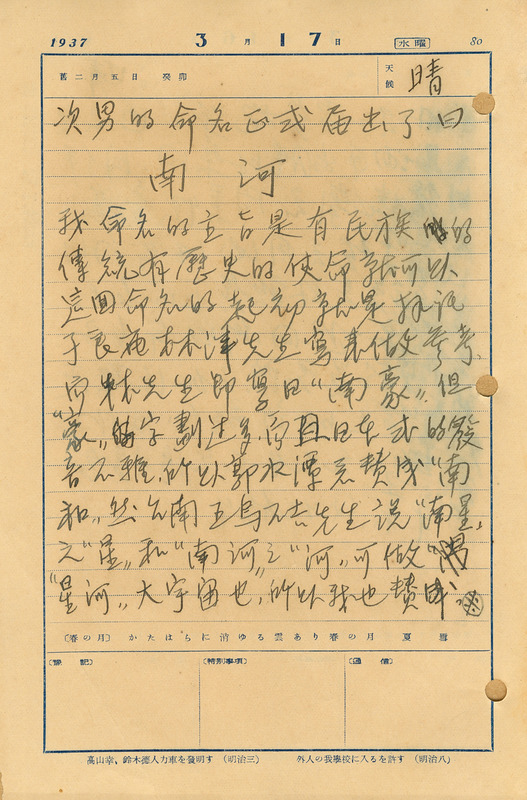 1937 3月17日 水曜 80
舊二月五日 癸卯 天候 晴
次男的命名正式届出了．曰
南 河
我命名的主旨是有民族的
傳統有歷史的使命就可以
這回命名的起初就是拜託
林清先生寫來做參考
而林先生即寫曰“南豪”，但
“豪”的字劃过多，而且日本式的發
音不雅，所以郭水潭君贊成“南
和”，然台南王烏不吉先生說“南星”
之“星”和“南河”之“河”可做
“星河”大宇宙也，所以我也贊成
〔春の月〕 かたはらに消ゆる雲あり春の月 夏雪
〔豫記〕 〔特別事項〕 〔通信〕
高山幸、鈴木德人力車を發明す（明治三） 外人の我學校に入るを許す（明治八）